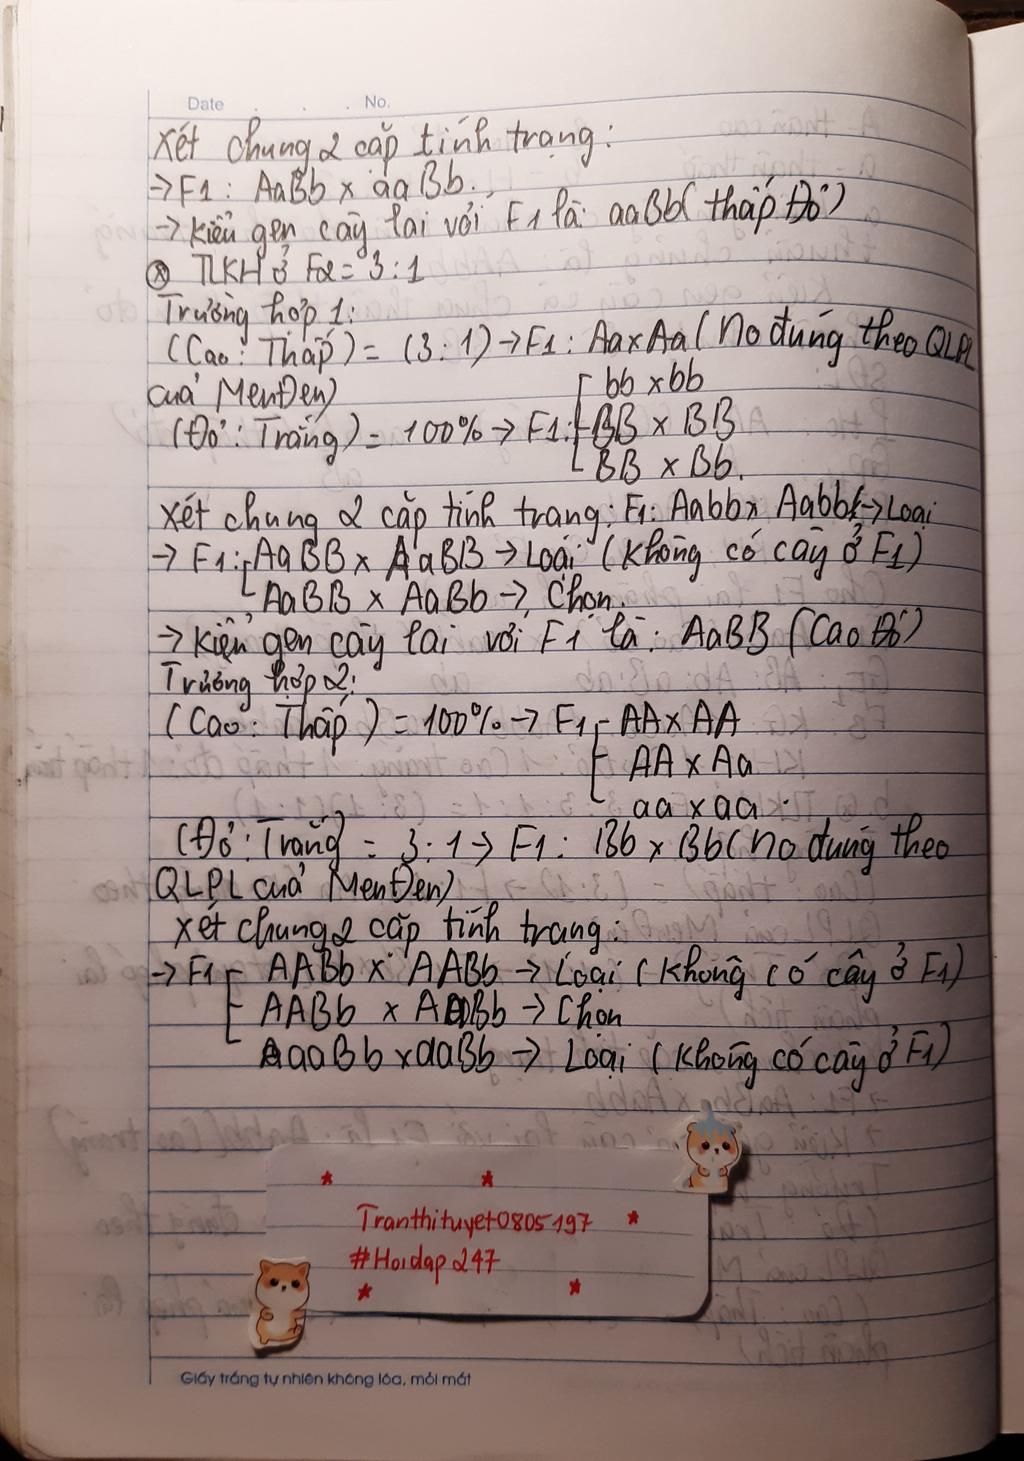 Date . . . No.
Xét chung 2 cặp tính trạng:
→F1: AaBb x aaBb.
→ Kiểu gen cây lai với F1 là: aaBb( thấp Đỏ)
⊗ TLKH ở F2= 3:1
Trường hợp 1:
(Cao: Thấp) = (3:1) →F1: Aa x Aa ( No đúng theo QLPL
cuả MenĐen)
bb x bb
(Đỏ: Trắng) = 100% → F1: BB x BB
BB x Bb.
Xét chung 2 cặp tính trạng: F1: Aabb x Aabb →Loại
→ F1: AaBB x AaBB → Loại (không có cây ở F1)
AaBB x AaBb → Chọn.
→ Kiểu gen cây lai với F1 là: AaBB (Cao Đỏ)
Trường hợp 2:
(Cao: Thấp) = 100% → F1 AA x AA
AA x Aa
aa x aa.
(Đỏ: Trắng) = 3:1 → F1: Bb x Bb( No đúng theo
QLPL cuả MenĐen)
Xét chung 2 cặp tính trạng:
→ F1 AABb x AABb → Loại (không có cây ở F1)
AABb x Bb → Chọn
aaBb x aaBb → Loại (không có cây ở F1)
Tranthituyet0805197
#Hoidap247
Giấy trắng tự nhiên không lóa, mỏi mắt